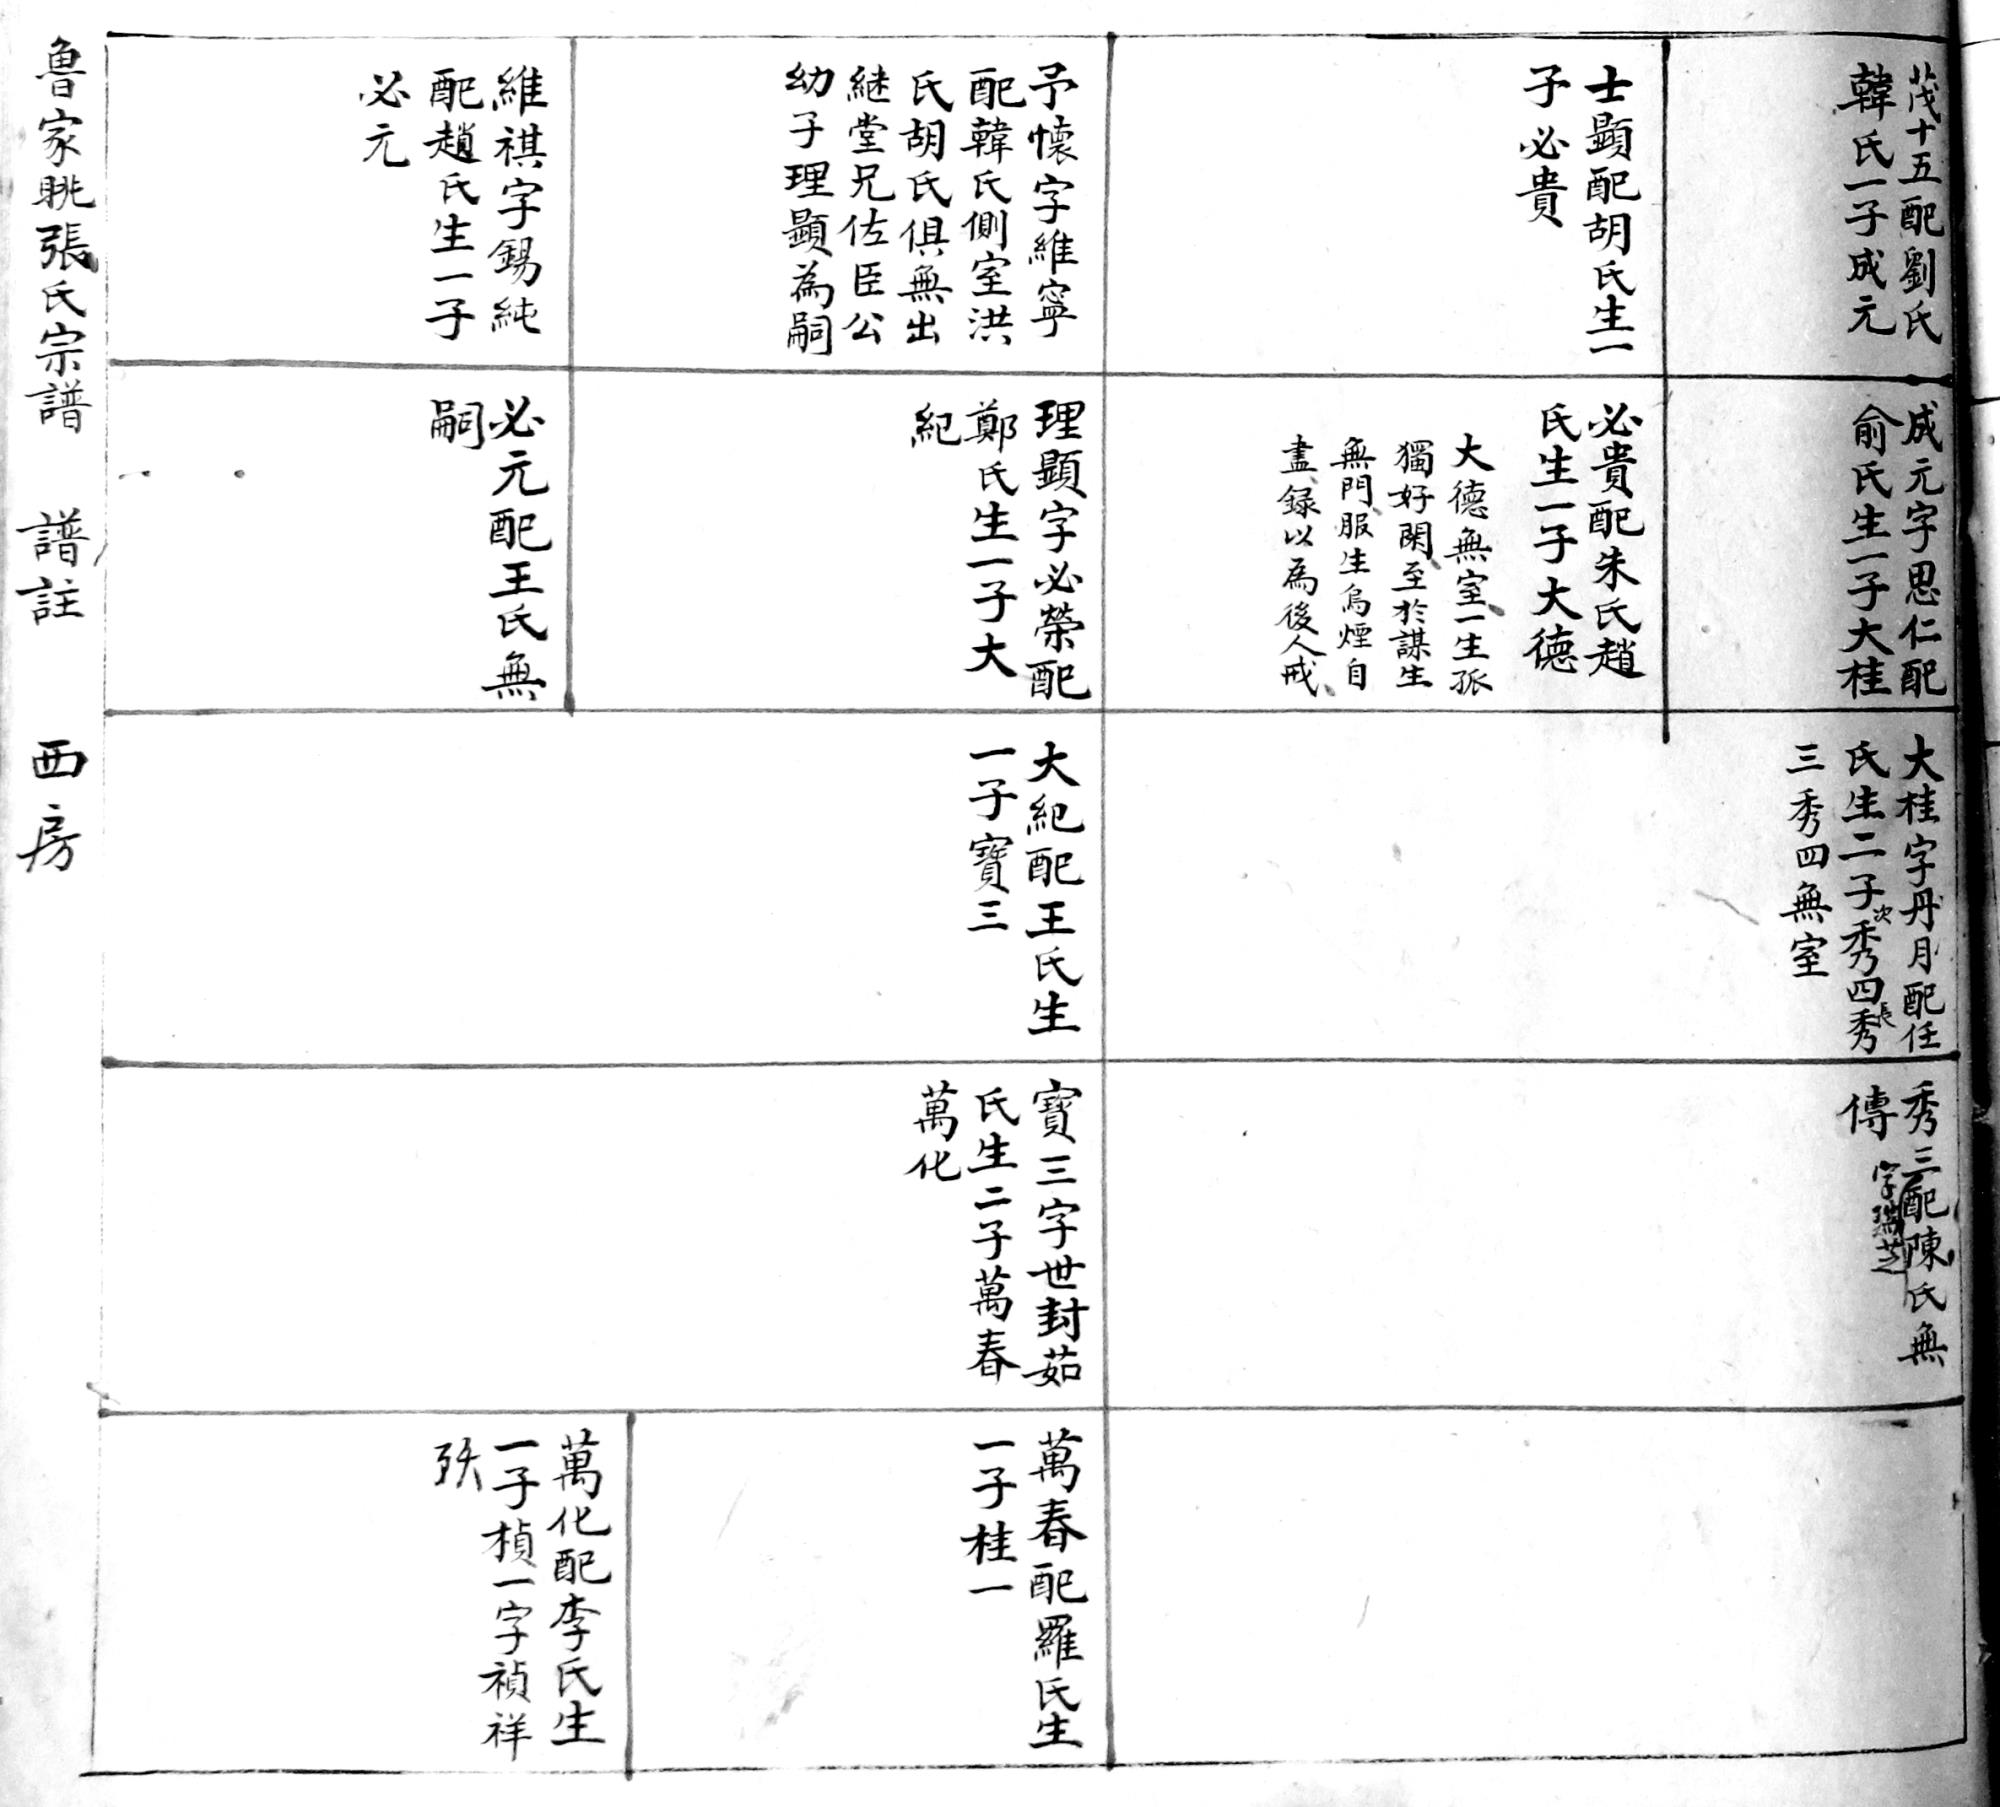 茂十五配劉氏
韓氏一子成元
士顯配胡氏生一
子必貴
予懷字維寧
配韓氏側室洪
氏胡氏俱無出
継堂兄佐臣公
幼子理顯為嗣
維祺字錫純
配趙氏生一子
必元
成元字思仁配
俞氏生一子大桂
必貴配朱氏趙
氏生一子大德
大德無室一生孤
獨好閑至於謀生
無門服生烏煙自
盡録以爲後人戒
理顯字必榮配
鄭氏生一子大
紀
必元配王氏無
嗣
大桂字丹月配任
氏生二子次秀四長秀
三秀四無室
大紀配王氏生
一子寶三
秀三配陳氏無
傳
字瑞芝
寶三字世封茹
氏生二子萬春
萬化
萬春配羅氏生
一子桂一
萬化配李氏生
一子楨一字禎祥
殀
魯家眺張氏宗譜 譜註 西房